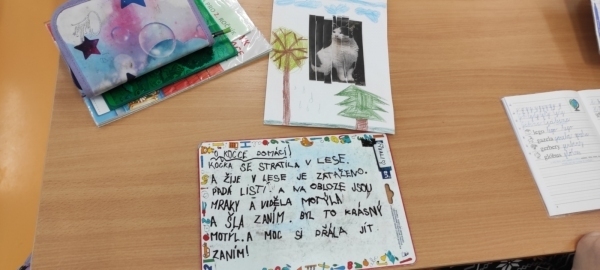 O KOČCE DOMÁCÍ
KOČKA SE STRATILA V LESE.
A ŽIJE V LESE JE ZATAŽENO.
PADÁ LISTÍ. A NA OBLOZE JSOU
MRAKY A VIDĚLA MOTÝLA
A ŠLA ZANÍM. BYL TO KRÁSNÝ
MOTÝL. A MOC SI PŘÁLA JÍT
ZANÍM!